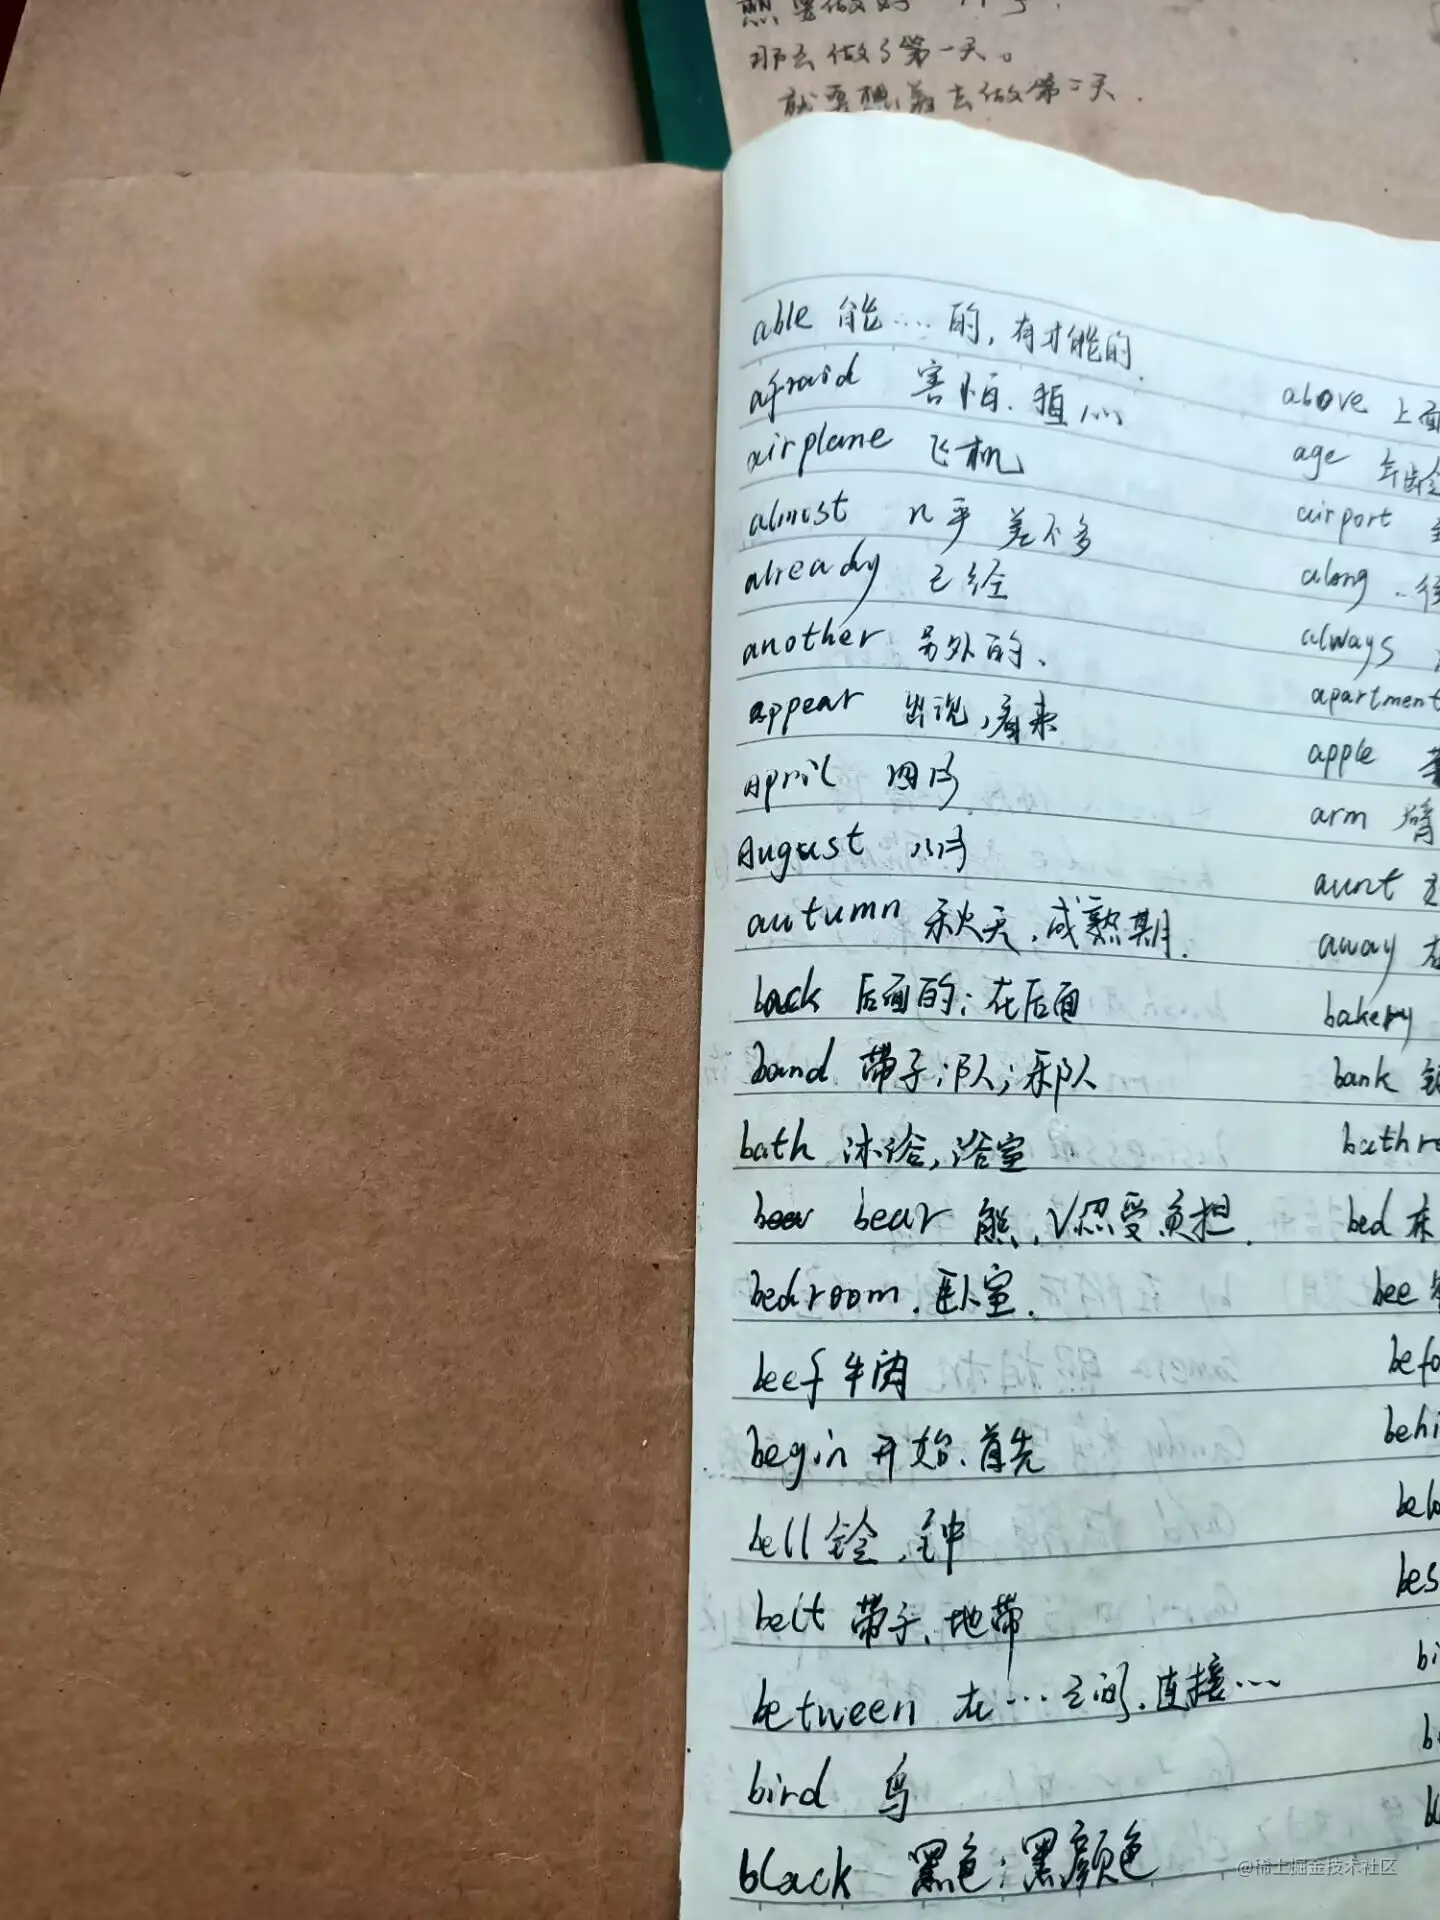 那么做了第一天。
就要想着去做第二天.
able 能…. 的, 有才能的.
afraid 害怕. 担心 above 上面
airplane 飞机 age 年龄
almost 几乎 差不多 airport
already 已经 along
another 另外的、 always
appear 出现, 看来 apartment
April 四月 apple
August 八月 arm 臂
autumn 秋天, 成熟期. aunt
back 后面的; 在后面 away 在
band 带子; 队; 乐队 bakery
bath 沐浴, 浴室 bank
bear 熊, √忍受 负担. bathro
bedroom. 卧室. bed 床
beef 牛肉 bee
begin 开始. 首先 befo
bell 铃, 钟 behi
belt 带子、地带 belo
between 在…之间, 连接… bes
bird 鸟 bi
black 黑色; 黑颜色
@稀土掘金技术社区